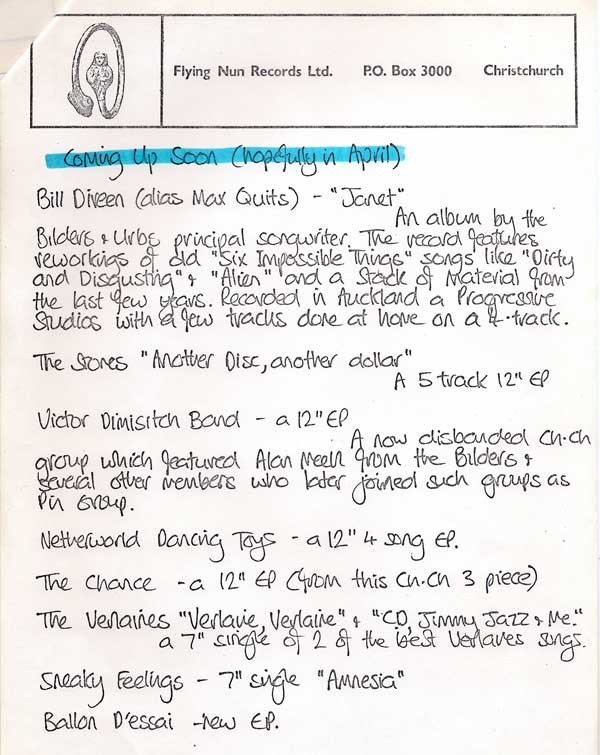 Flying Nun Records Ltd. P.O. Box 3000 Christchurch
Coming Up Soon (hopefully in April)
Bill Direen (alias Max Quits) - "Janet"
An album by the
Bilders & Urbs principal songwriter. The record features
reworkings of old "Six Impossible Things" songs like "Dirty
and Disgusting" & "Alien" and a Stack of Material from
the last few years. Recorded in Auckland a Progressive
Studios with a few tracks done at home on a 4-track.
The Stones "Another Disc, another dollar"
A 5 track 12" EP
Victor Dimisitch Band - a 12" EP
A now disbanded Ch.Ch
group which featured Alan Meek from the Bilders &
several other members who later joined such groups as
Pin Group.
Netherworld Dancing Toys - a 12" 4 song EP.
The Chance - a 12" EP (from this Ch.Ch 3 piece)
The Verlaines "Verlaine, Verlaine" & "CD, Jimmy Jazz & Me."
a 7" single of 2 of the best Verlaines songs.
Sneaky Feelings - 7" single "Amnesia"
Ballon D'essai - new EP.